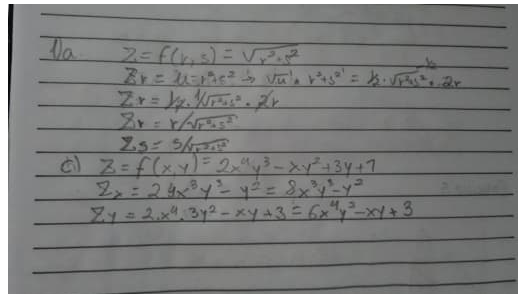 1)a. Z = f(r, s) = √r²+s²
Zr = u=r²+s² → √u' · r²+s²' = 1/2 · √r²+s²^-1/2 · 2r
Zr = 1/2 · 1/√r²+s² · 2r
Zr = r/√r²+s²
Zs = s/√r²+s²
c) Z = f(x,y) = 2x⁴y³ - xy² + 3y + 1
Zx = 2 4x³y³ - y² = 8x³y³ - y²
Zy = 2·x⁴·3y² - xy + 3 = 6x⁴y² - xy + 3